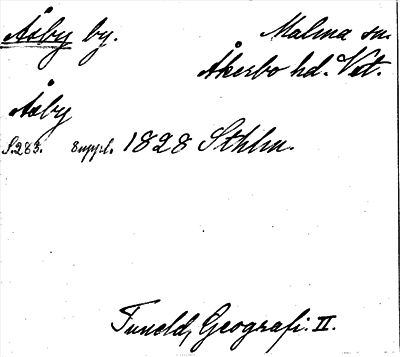 Åsby by. Malma sn.
Åkerbo hd. Vstm.
Åsby
S. 283. 8 uppl. 1828 Sthlm.
Tuneld, Geografi. II.